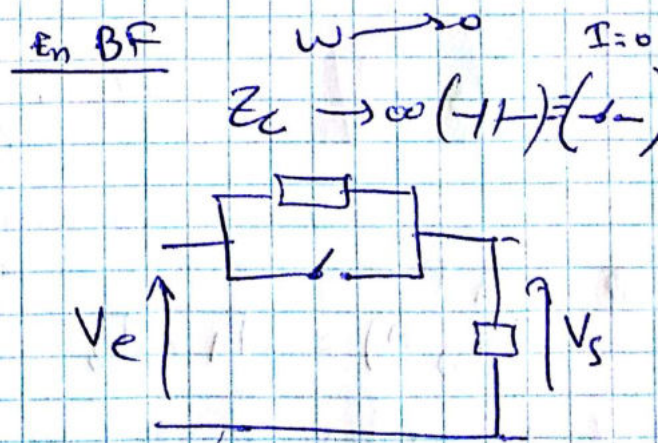 En BF
ω → 0 I=0
Zc → ∞ (⊣⊢)=(-/-)
Ve Vs